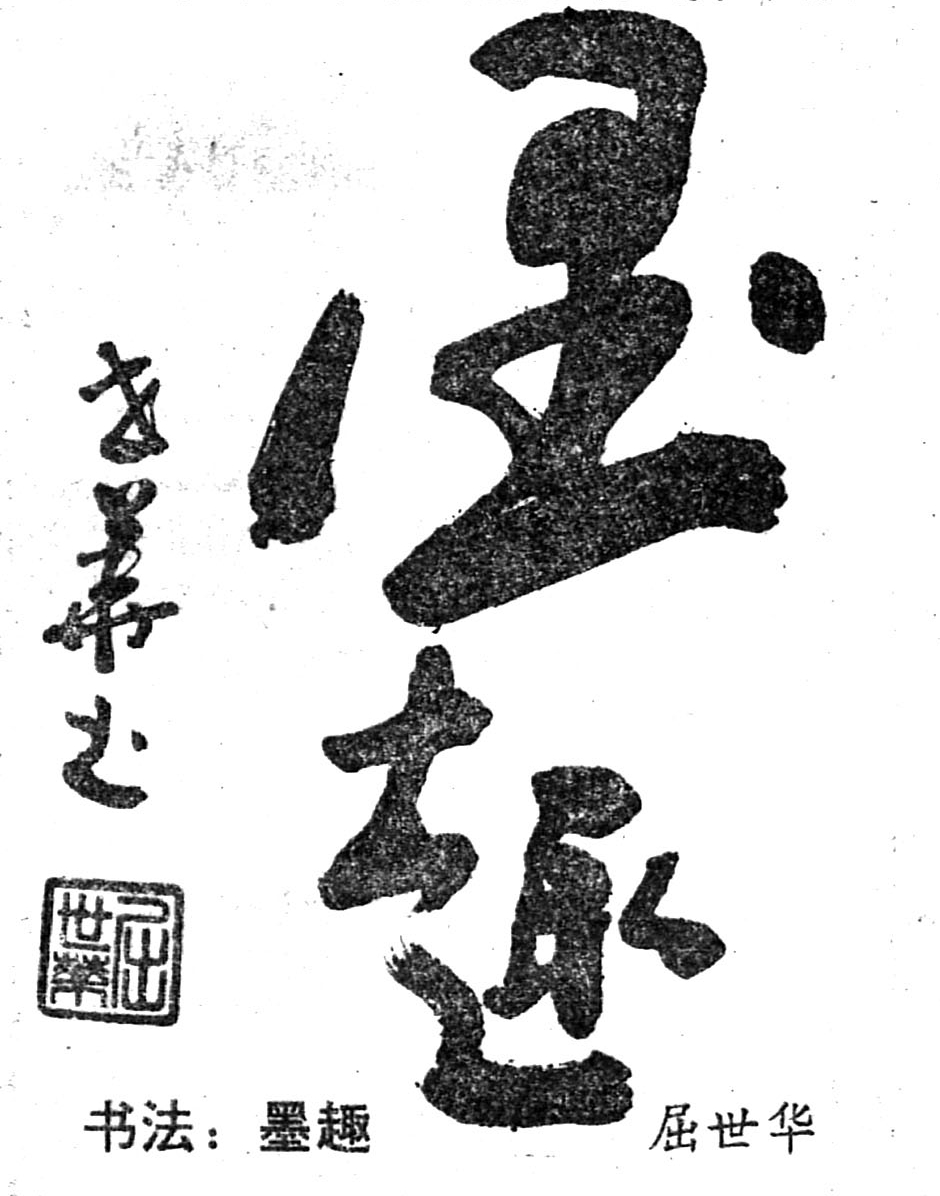 墨趣
世華书
屈世華
书法：墨趣 屈世华